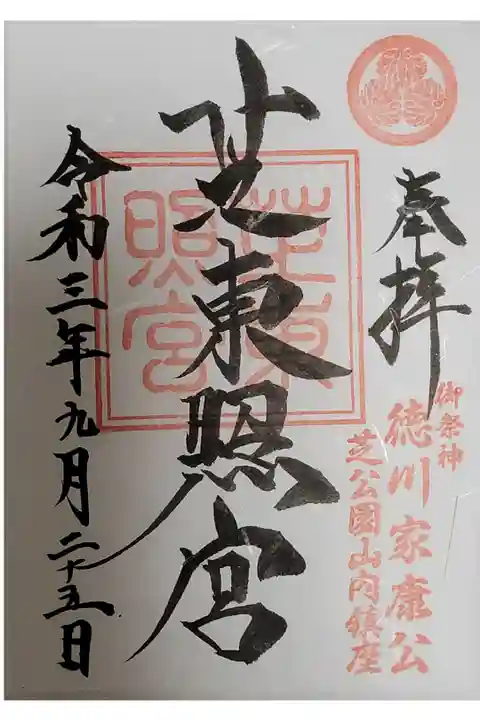 奉拝
御祭神
徳川家康公
芝公園山内鎮座
芝東照宮
芝東
照宮
令和三年九月二十五日